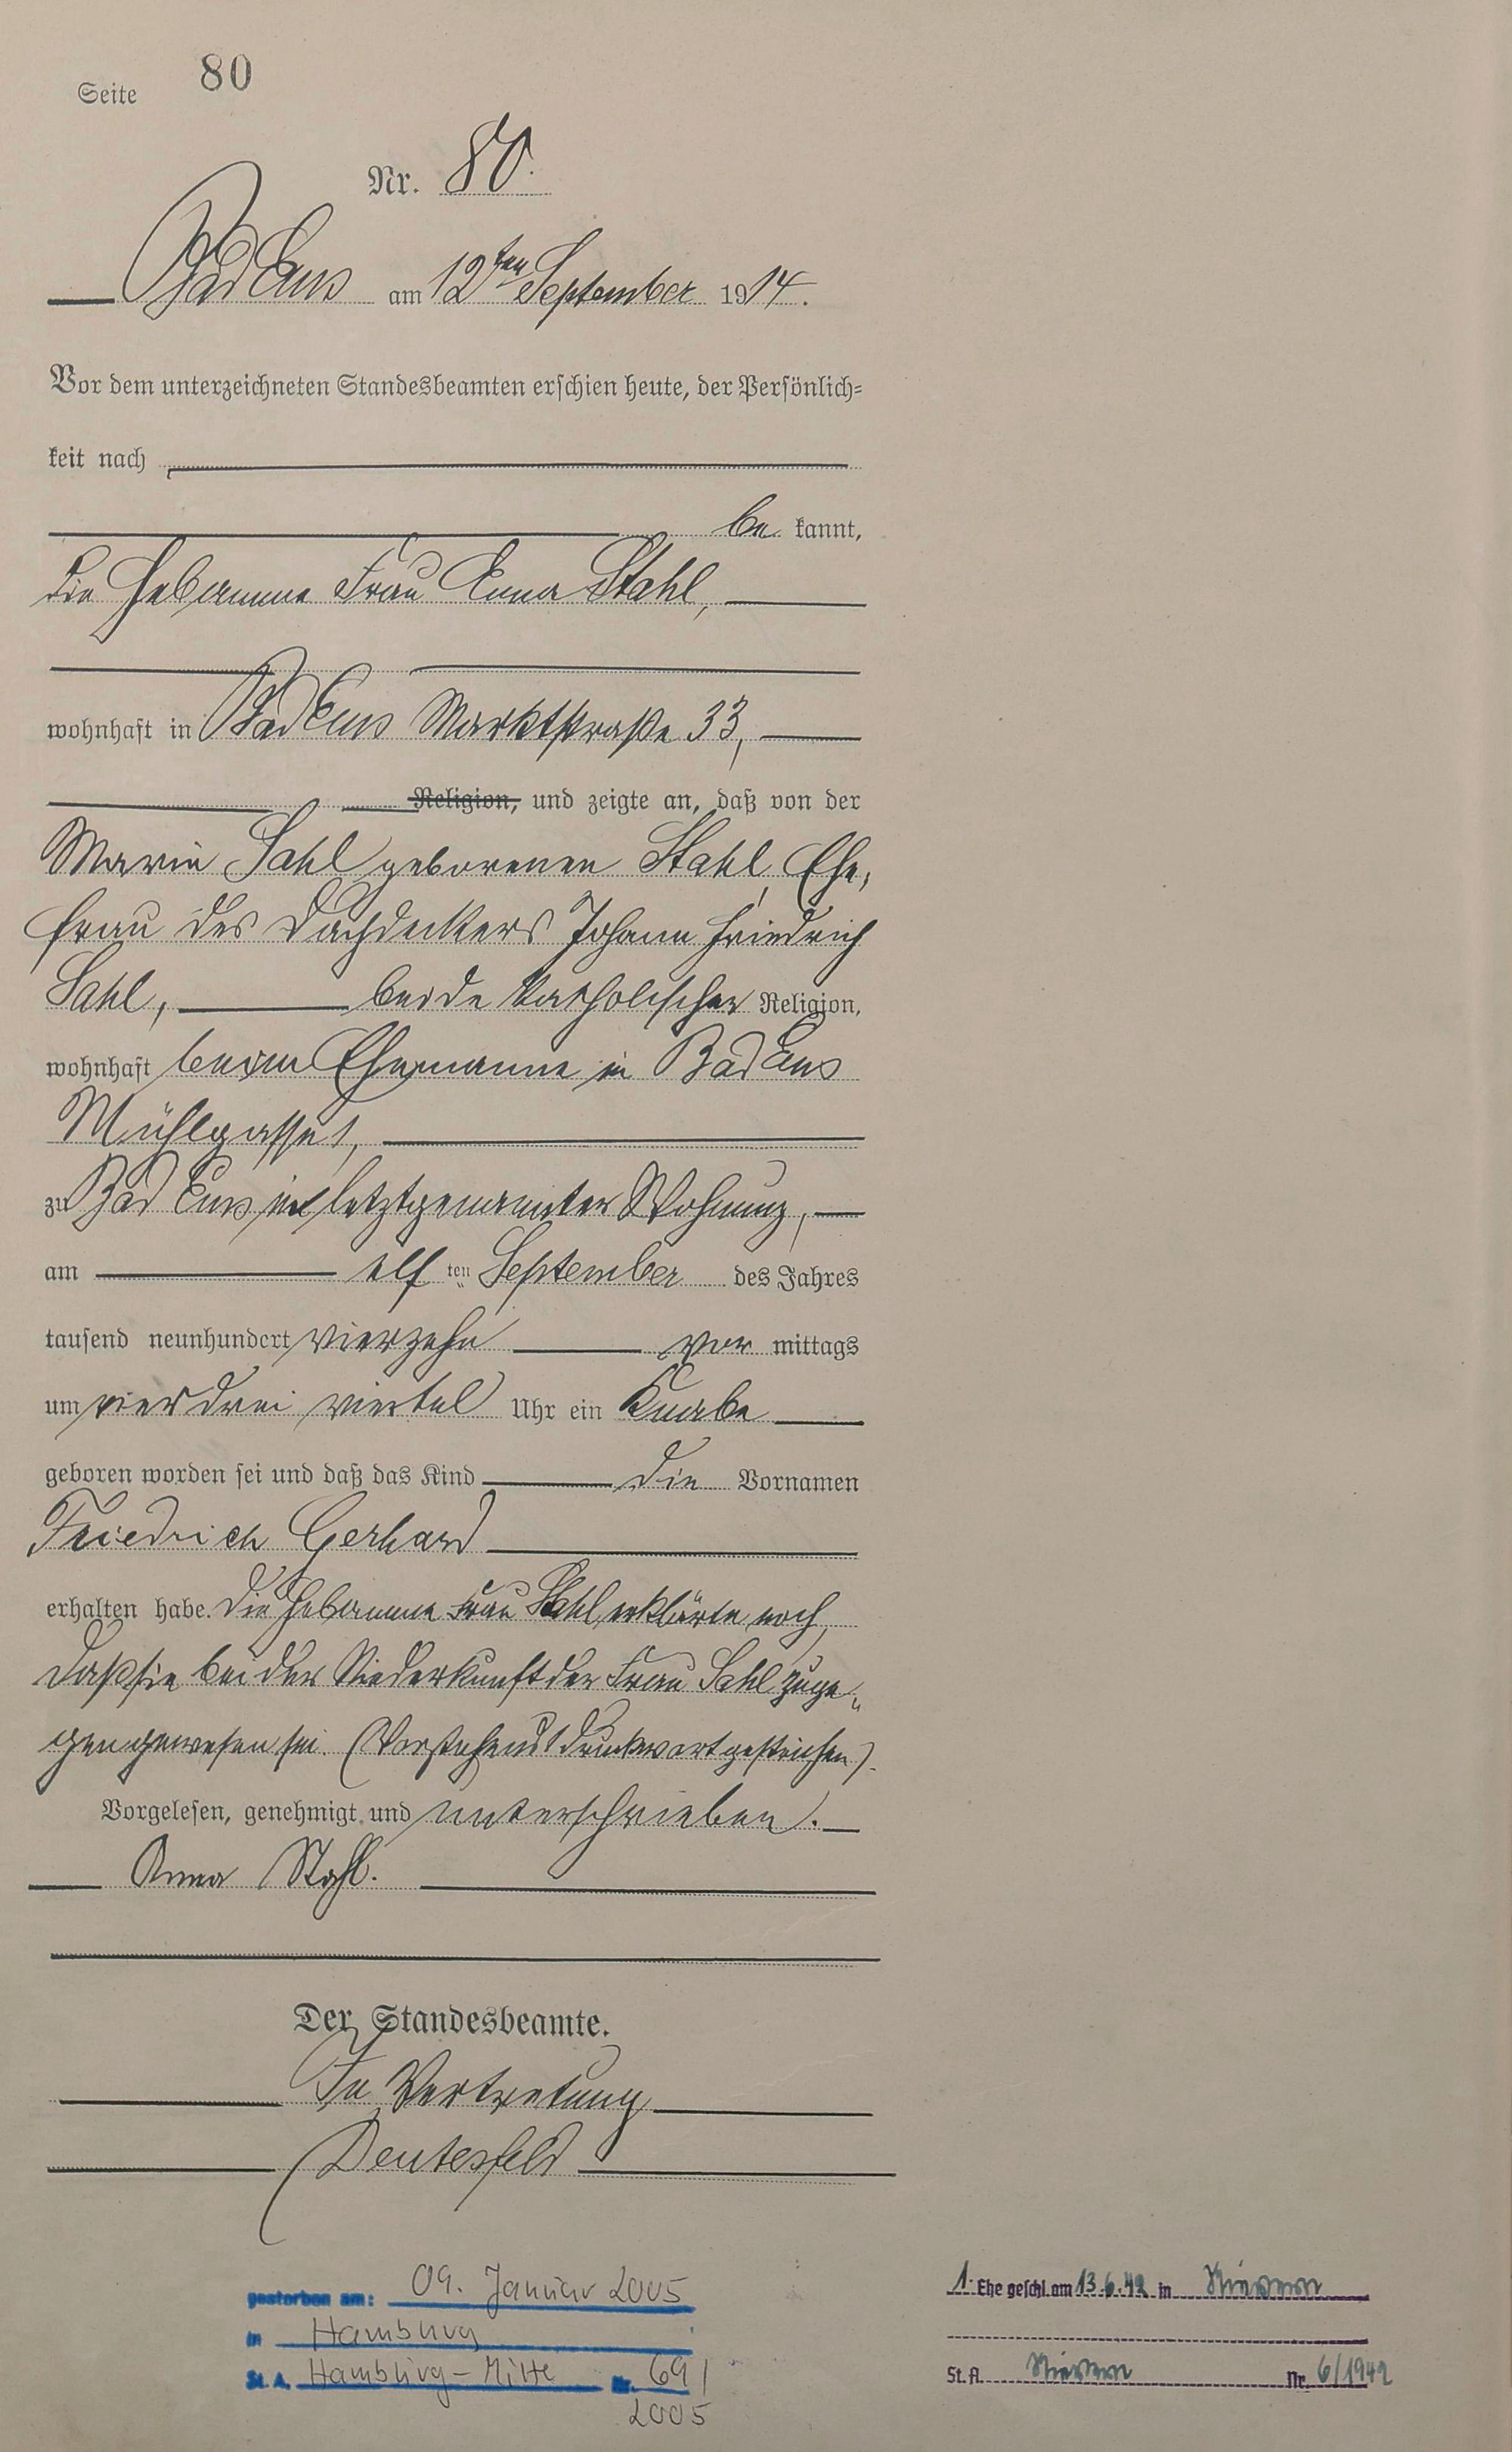 Seite 80
Nr. 80.
Bad Ems am 12ten September 1914.
Vor dem unterzeichneten Standesbeamten erschien heute, der Persönlich-
keit nach
be kannt,
die Hebamme Frau Anna Stahl,
wohnhaft in Bad Ems Marktstraße 33,
Religion, und zeigte an, daß von der
Marie Sahl geborenen Stahl, Ehe-
frau des Dachdeckers Johann Friedrich
Sahl, beide katholischer Religion,
wohnhaft beim Ehemanne in Bad Ems
Mühlgasse 1,
zu Bad Ems in letztgenannter Wohnung,
am elf ten September des Jahres
tausend neunhundert vierzehn vor mittags
um vier drei viertel Uhr ein Knabe
geboren worden sei und daß das Kind die Vornamen
Friedrich Gerhard
erhalten habe. Die Hebamme Frau Stahl erklärte noch,
daß sie bei der Niederkunft der Frau Sahl zuge-
gen gewesen sei. (Vorstehend 1 Druckwort gestrichen).
Vorgelesen, genehmigt und unterschrieben.
Anna Stahl.
Der Standesbeamte.
In Vertretung
gestorben am: 09. Januar 2005
in Hamburg
St. A. Hamburg-Mitte Nr. 691
2005
1. Ehe geschl. am 13.6.42 in Nievern
St. A. Nievern Nr. 6/1942